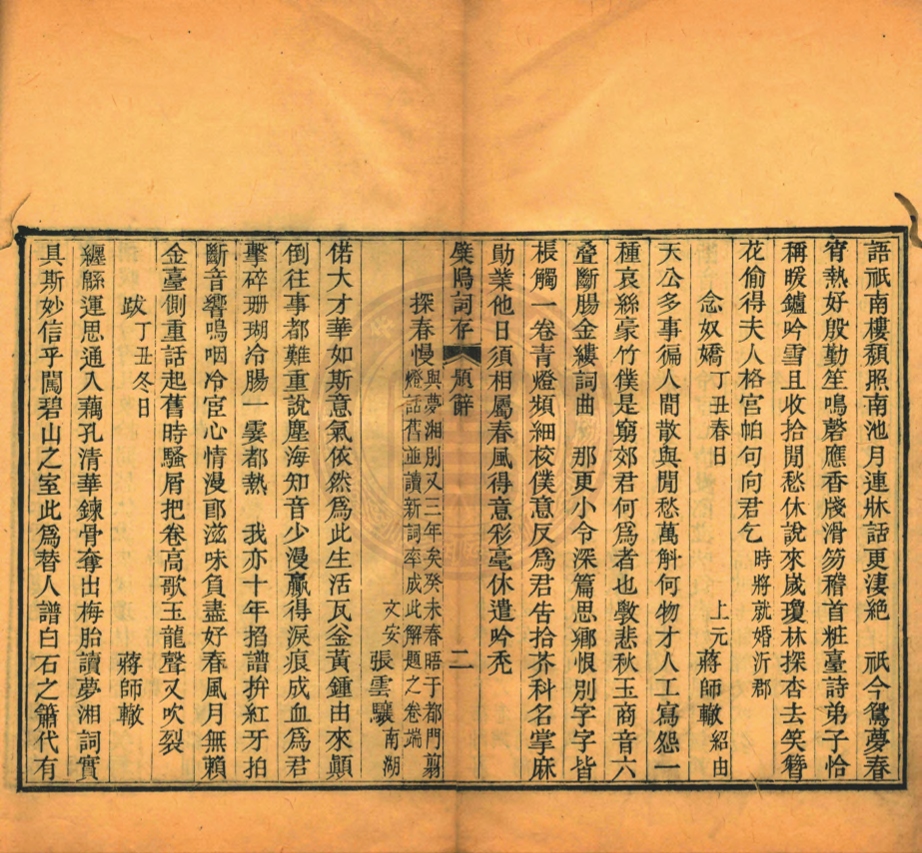 語祇南樓頹照南池月連牀話更淒絕　祇今鴛夢春
宵熱好殷勤笙鳴磬應香牋滑笏稽首粧臺詩弟子恰
稱暖鑪吟雪且收拾閒愁休說來歲瓊林探杏去笑簪
花偷得夫人格宮帕句向君乞時將就婚沂郡
念奴嬌丁丑春日　上元蔣師轍紹由
天公多事徧人間散與閒愁萬斛何物才人工寫怨一
種哀絲豪竹僕是窮郊君何爲者也斆悲秋玉商音六
疊斷腸金縷詞曲　那更小令深篇思鄉恨別字字皆
棖觸一卷青燈頻細校僕意反爲君告拾芥科名掌麻
勛業他日須相屬春風得意彩毫休遣吟禿
檗塢詞存　題辭　二
探春慢與夢湘別又三年矣癸未春晤于都門翦
燈話舊並讀新詞率成此解題之卷端
文安張雲驤南湖
偌大才華如斯意氣依然爲此生活瓦釜黃鍾由來顚
倒往事都難重說塵海知音少漫贏得淚痕成血爲君
擊碎珊瑚冷腸一霎都熱　我亦十年掐譜拚紅牙拍
斷音響嗚咽冷宦心情漫郎滋味負盡好春風月無賴
金臺側重話起舊時騷屑把卷高歌玉龍聲又吹裂
跋丁丑冬日　蔣師轍
纏緜運思通入藕孔清華鍊骨奪出梅胎讀夢湘詞實
具斯妙信乎闖碧山之室此爲替人譜白石之簫代有